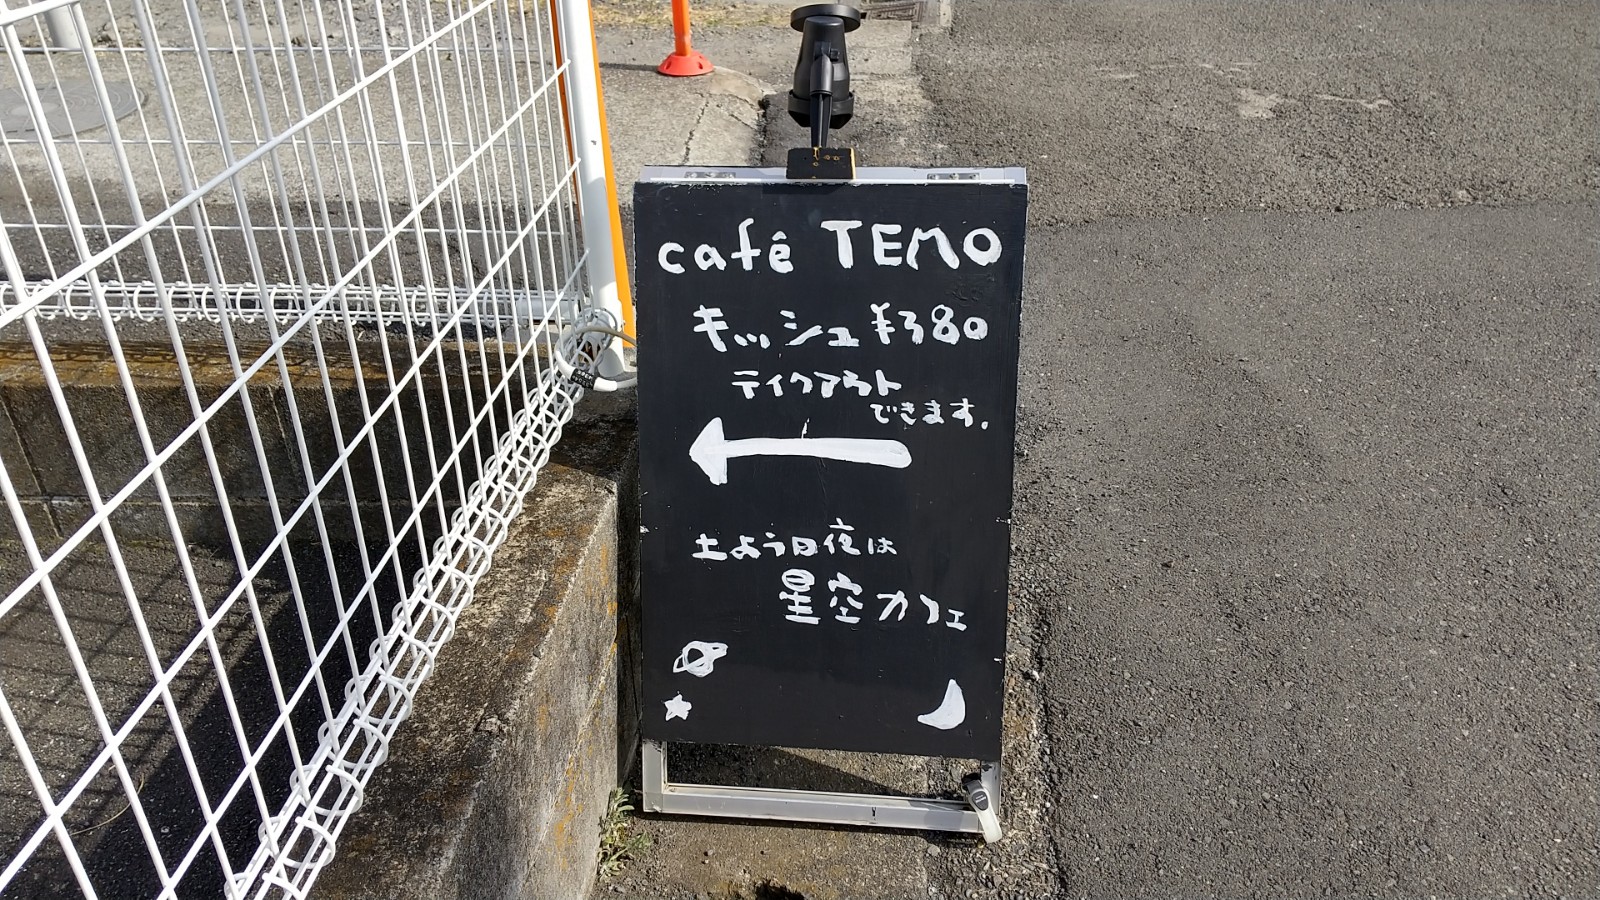 café TEMO
キッシュ ¥380
テイクアウト
できます。
土よう日夜は
星空カフェ